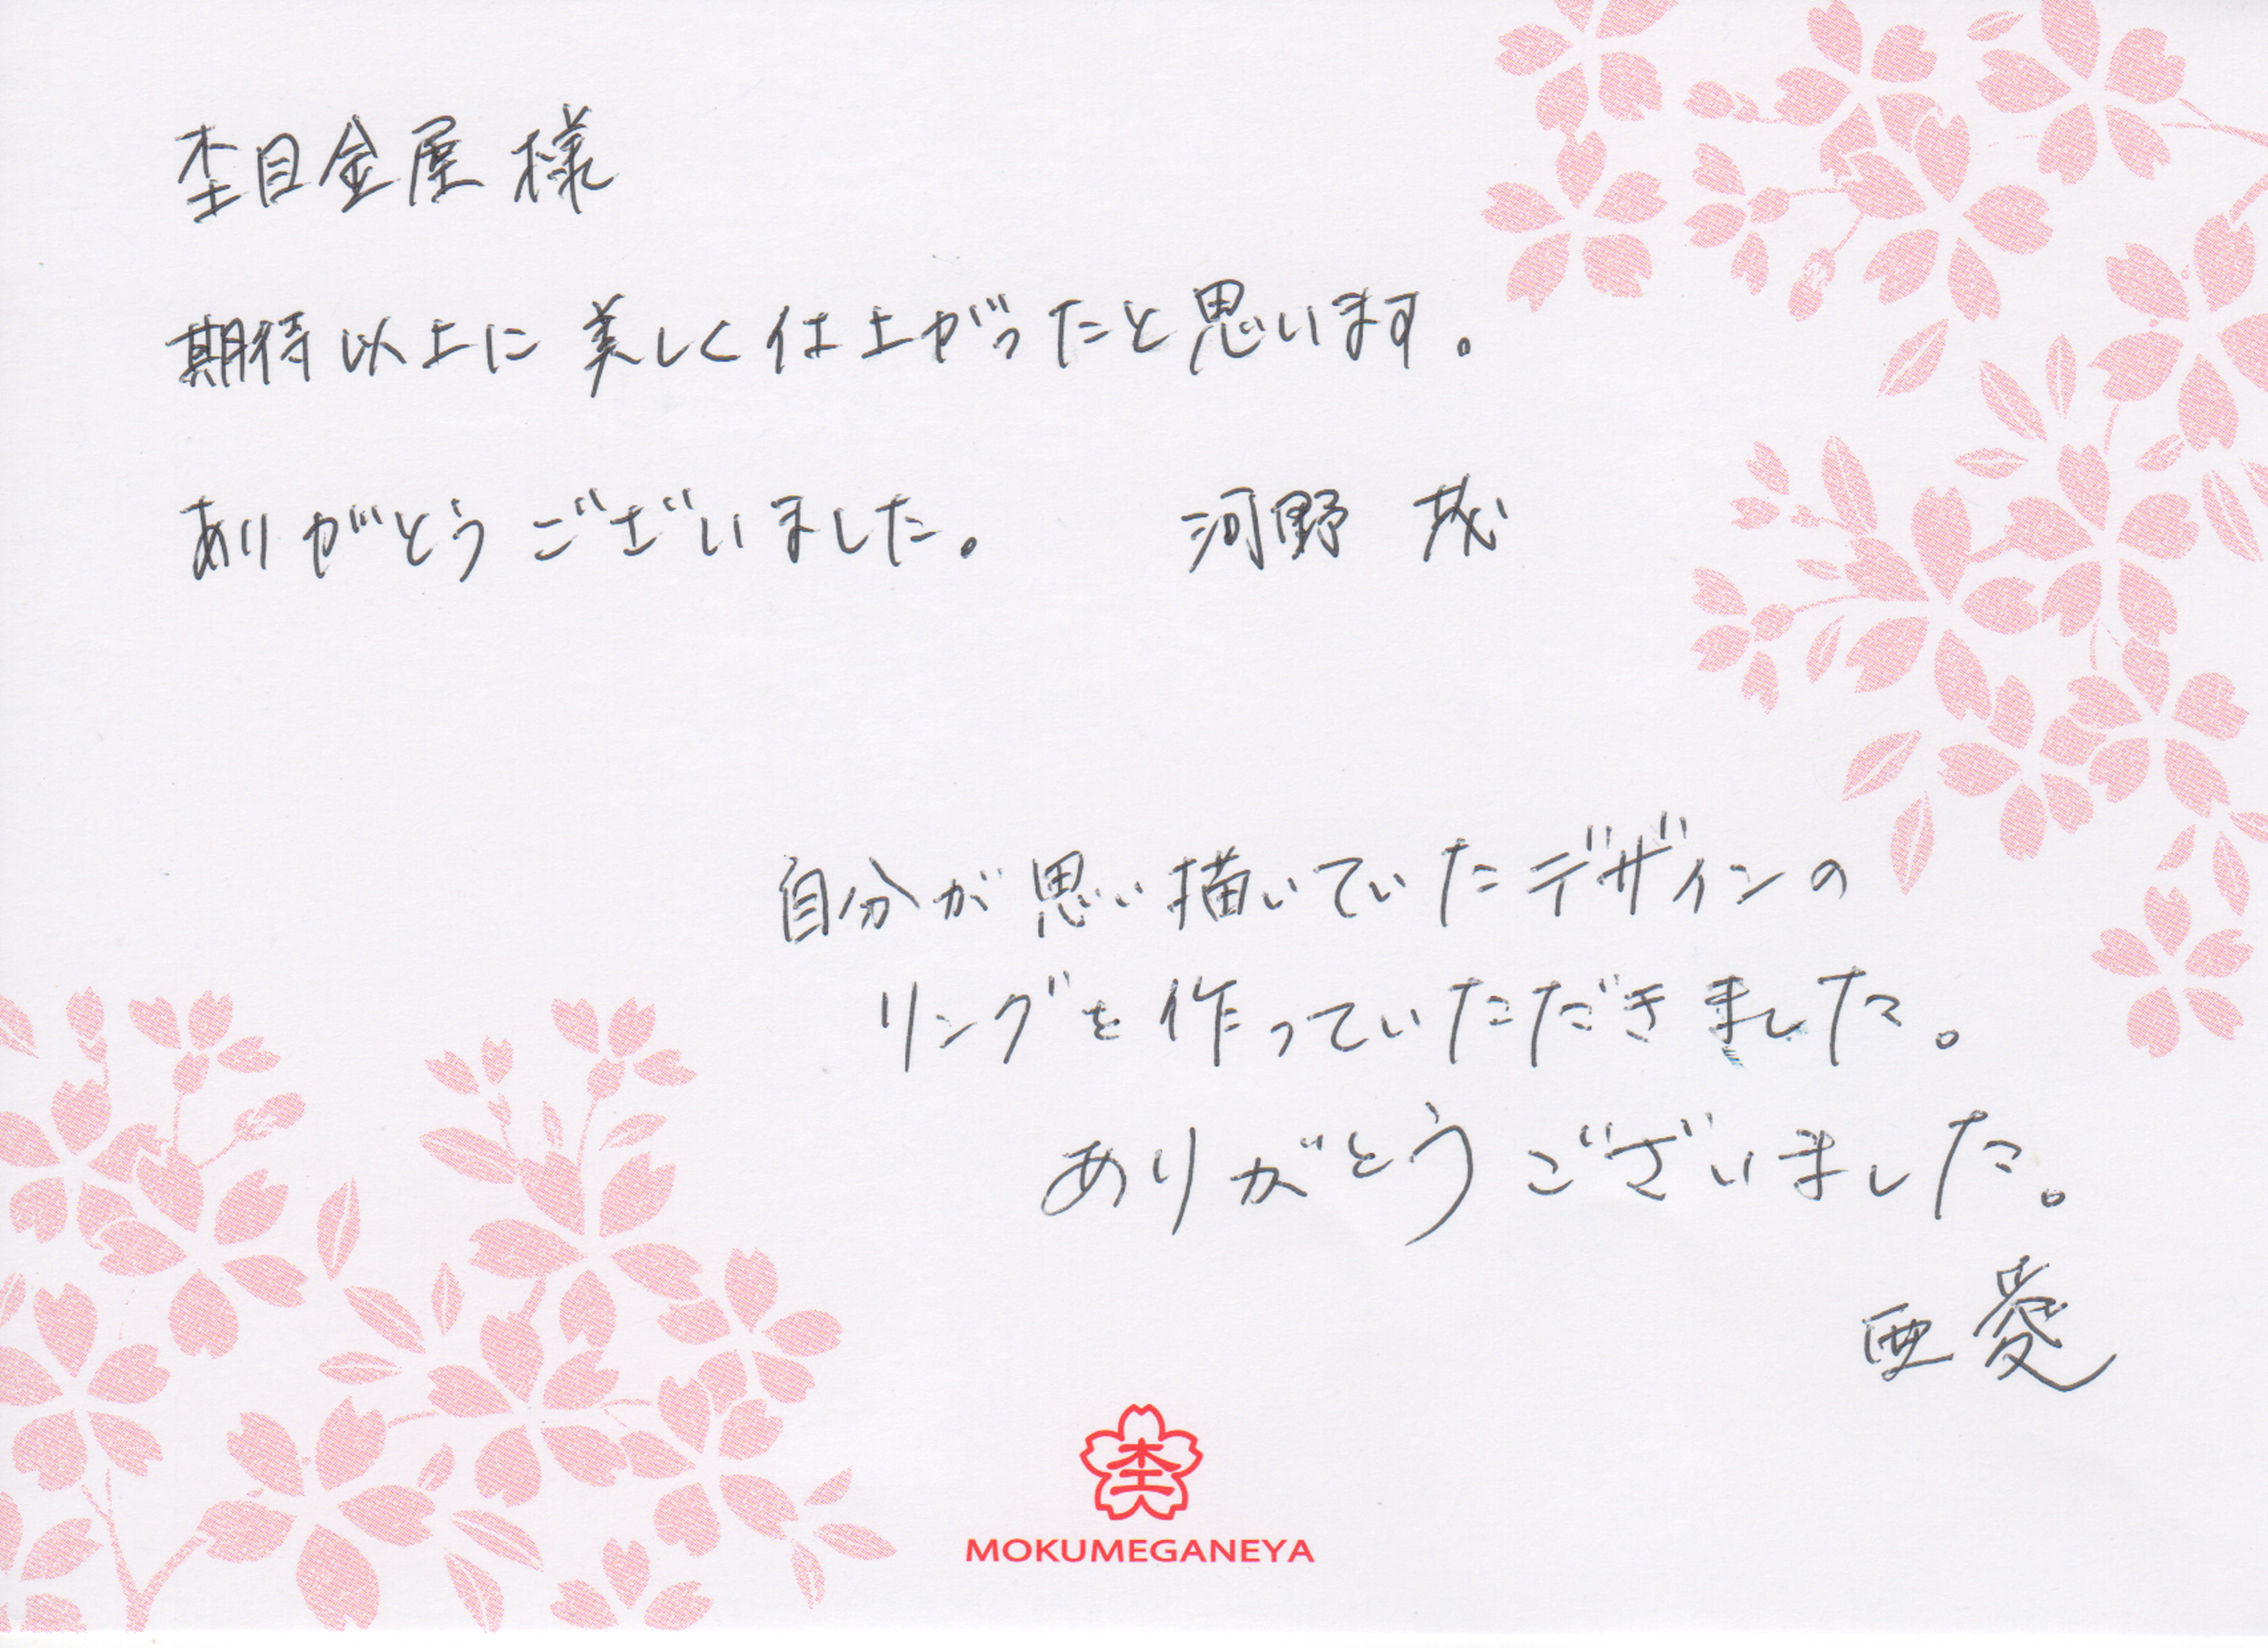 杢目金屋 様
期待以上に 美しく 仕上がったと思います。
ありがとうございました。 河野 茂
自分が思い描いていたデザインの
リングを作っていただきました。
ありがとうございました。
亜愛
杢
MOKUMEGANEYA